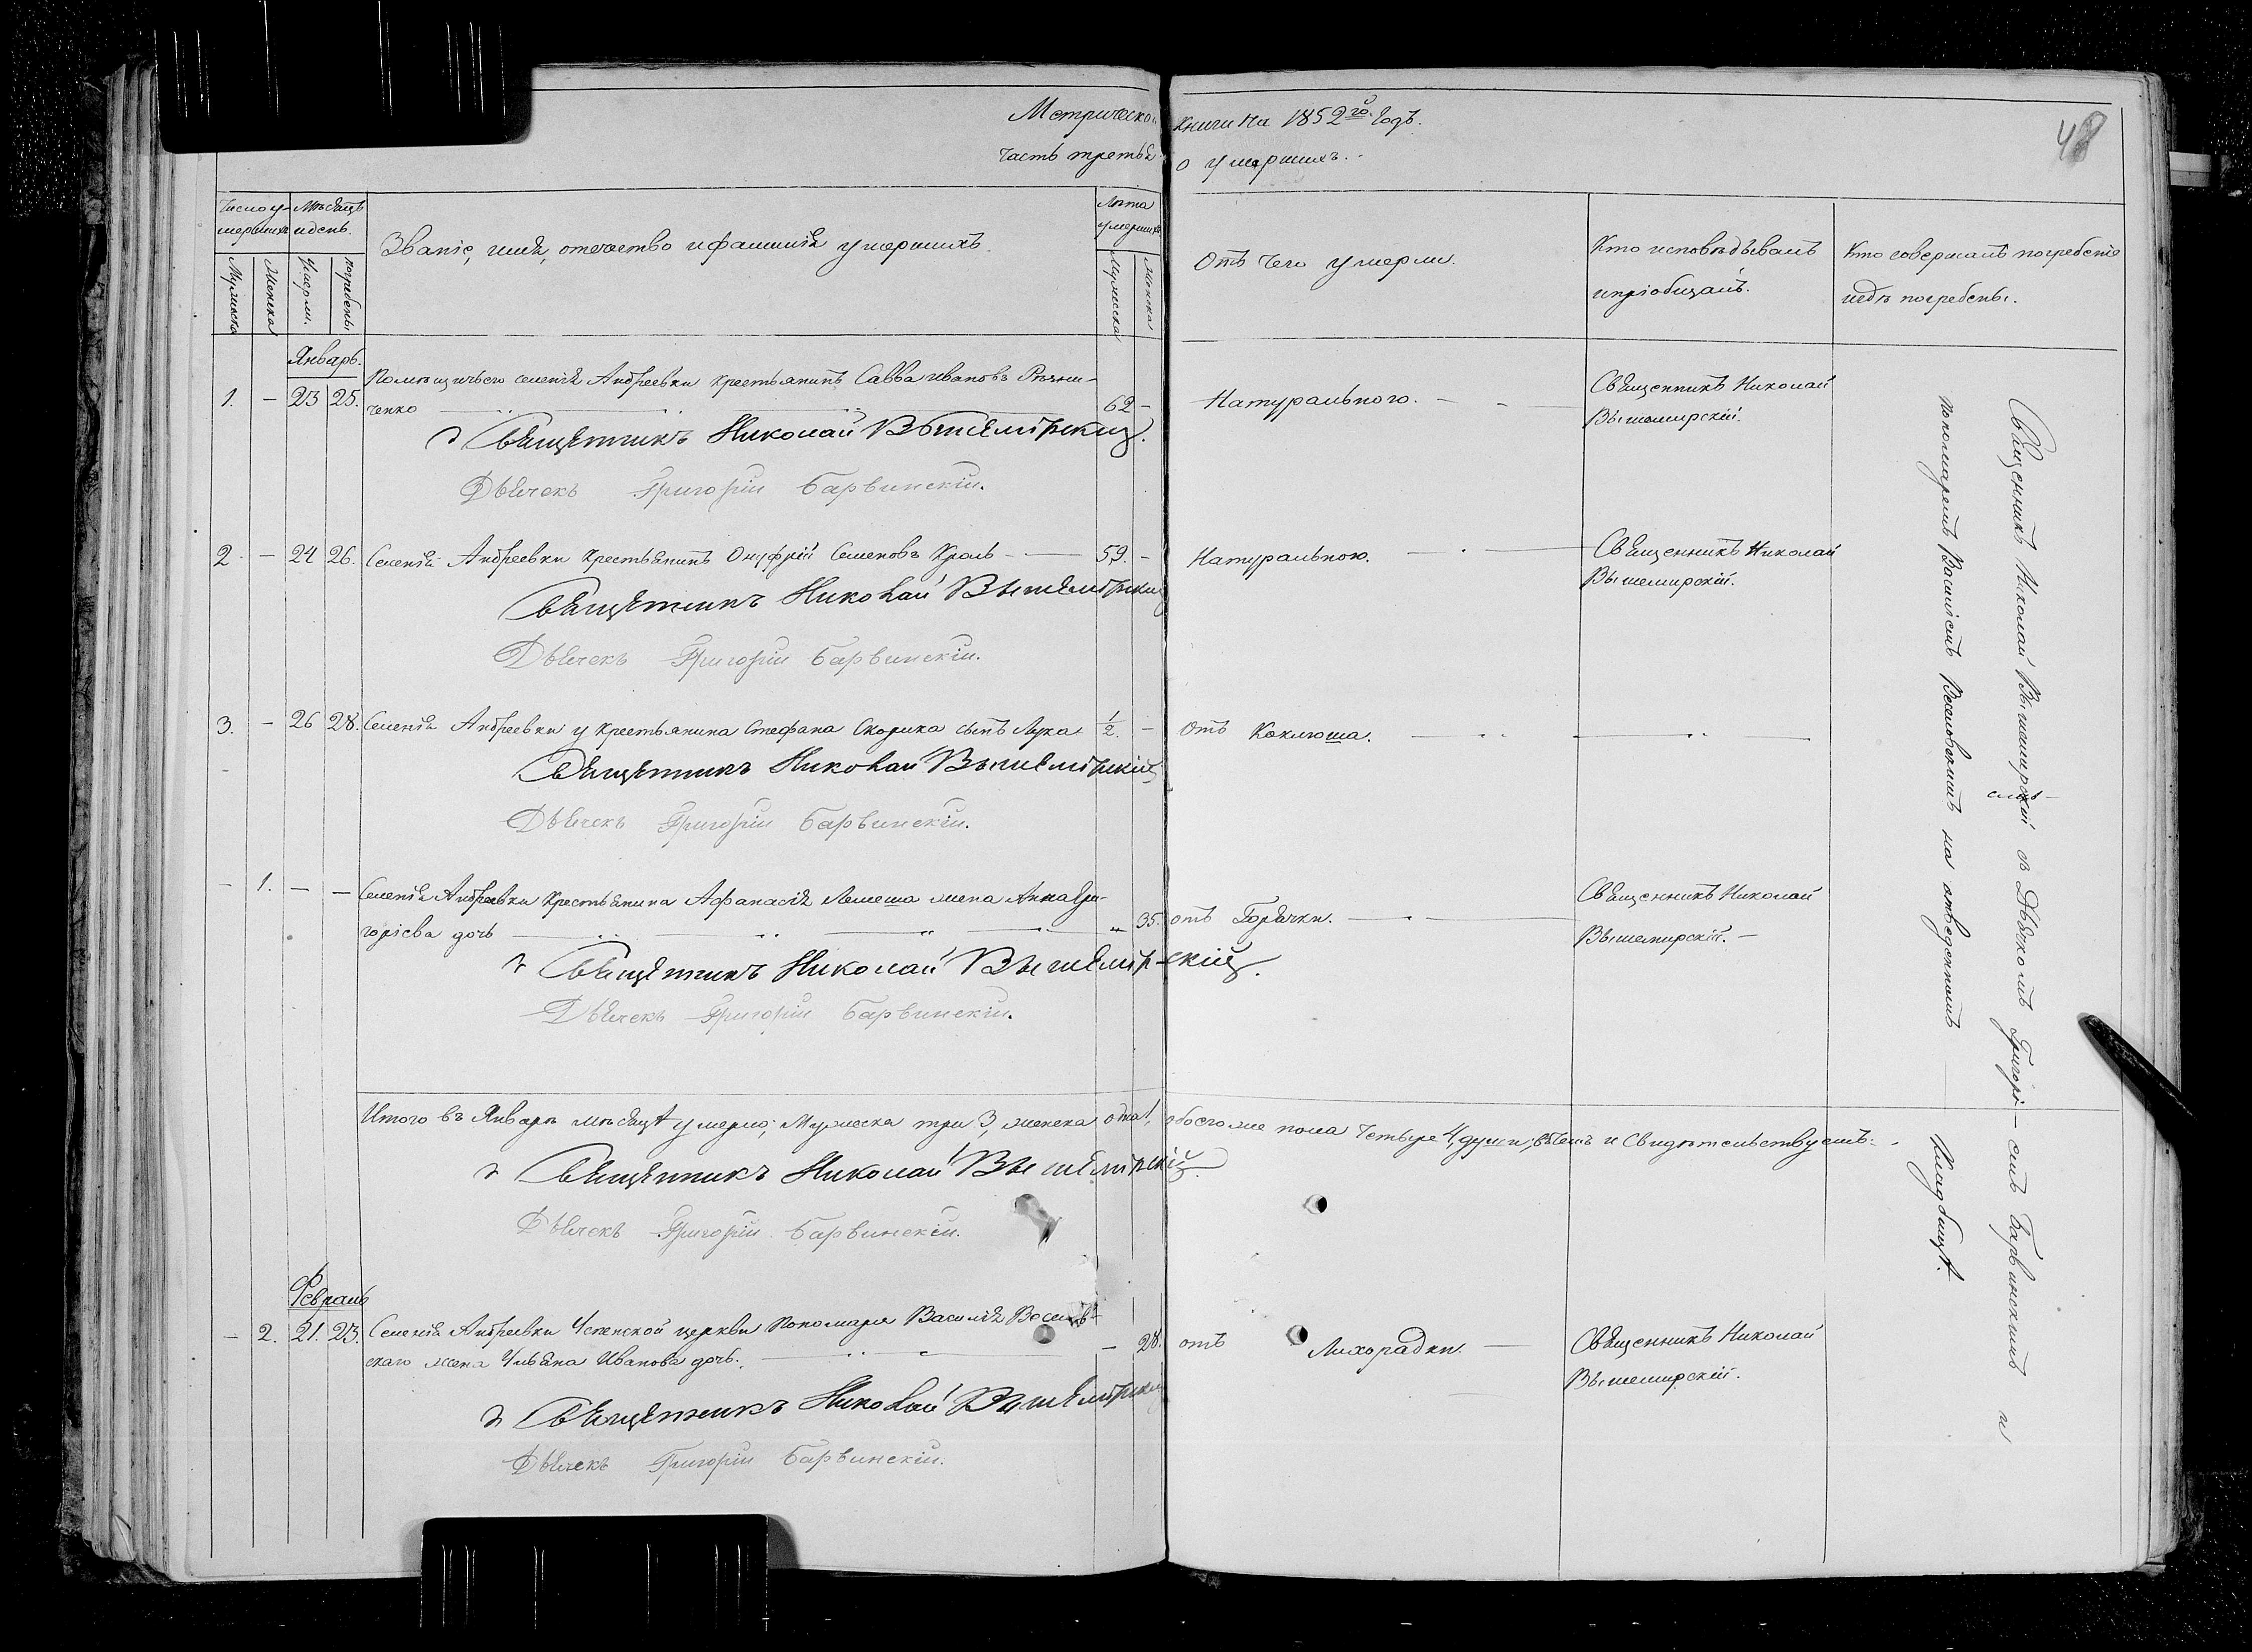 Метрической книги на 1852го Годъ.
48
часть третья о умершихъ.
Число умершихъ
Мѣсяцъ и день.
Званіе, имя, отечество и фамилія умершихъ.
Лѣта умершихъ
Отъ чего умерли.
Кто исповѣдывалъ и пріобщалъ.
Кто совершалъ погребеніе и гдѣ погребены.
Мужеска
Женска
Умерли.
погребены.
Мужеска
Женска
Январь.
1. – 23 25. Помѣщичьего селенія Андреевки крестьянинъ Савва Ивановъ Рѣзни-
ченко 62 – Натурального. Священникъ Николай
Вышемирскій.
Священникъ Николай Вышемірскій.
Дьячекъ Григорій Барвинскій.
2. – 24 26. Селенія Андреевки Крестьянинъ Онуфрій Семеновъ Кроль 59. – Натурального. Священникъ Николай
Вышемирскій.
Священникъ Николай Вышемірскій
Дьячекъ Григорій Барвинскій.
3. – 26 28. Селенія Андреевки у крестьянина Стефана Скорика сынъ Лука 1/2. – отъ Коклюша.
Священникъ Николай Вышемірскій
Дьячекъ Григорій Барвинскій.
– 1. – – Селенія Андреевки Крестьянина Афанасія Лемеша жена Анна Гри-
горіева дочь „ 35. отъ Горячки. Священникъ Николай
Вышемирскій.
Священникъ Николай Вышемірскій.
Дьячекъ Григорій Барвинскій.
Итого въ Январѣ мѣсяцѣ умерло; Мужеска три 3, женска одна 1, обоего же пола четыре 4, души, въ чемъ и свидѣтельствуемъ:
Священникъ Николай Вышемірскій.
Дьячекъ Григорій Барвинскій.
Февраль
– 2. 21. 23. Селенія Андреевки Успенской церкви Пономаря Василія
скаго жена Ульяна Иванова дочь. – 28. отъ Лихорадки. Священникъ Николай
Вышемирскій.
Священникъ Николай Вышемірскій
Дьячекъ Григорій Барвинскій.
Священникъ Николай Вышемирскій съ Дьячкомъ Григоріемъ Барвинскимъ и
пономаремъ Василіемъ на отведенномъ Кладбищѣ.